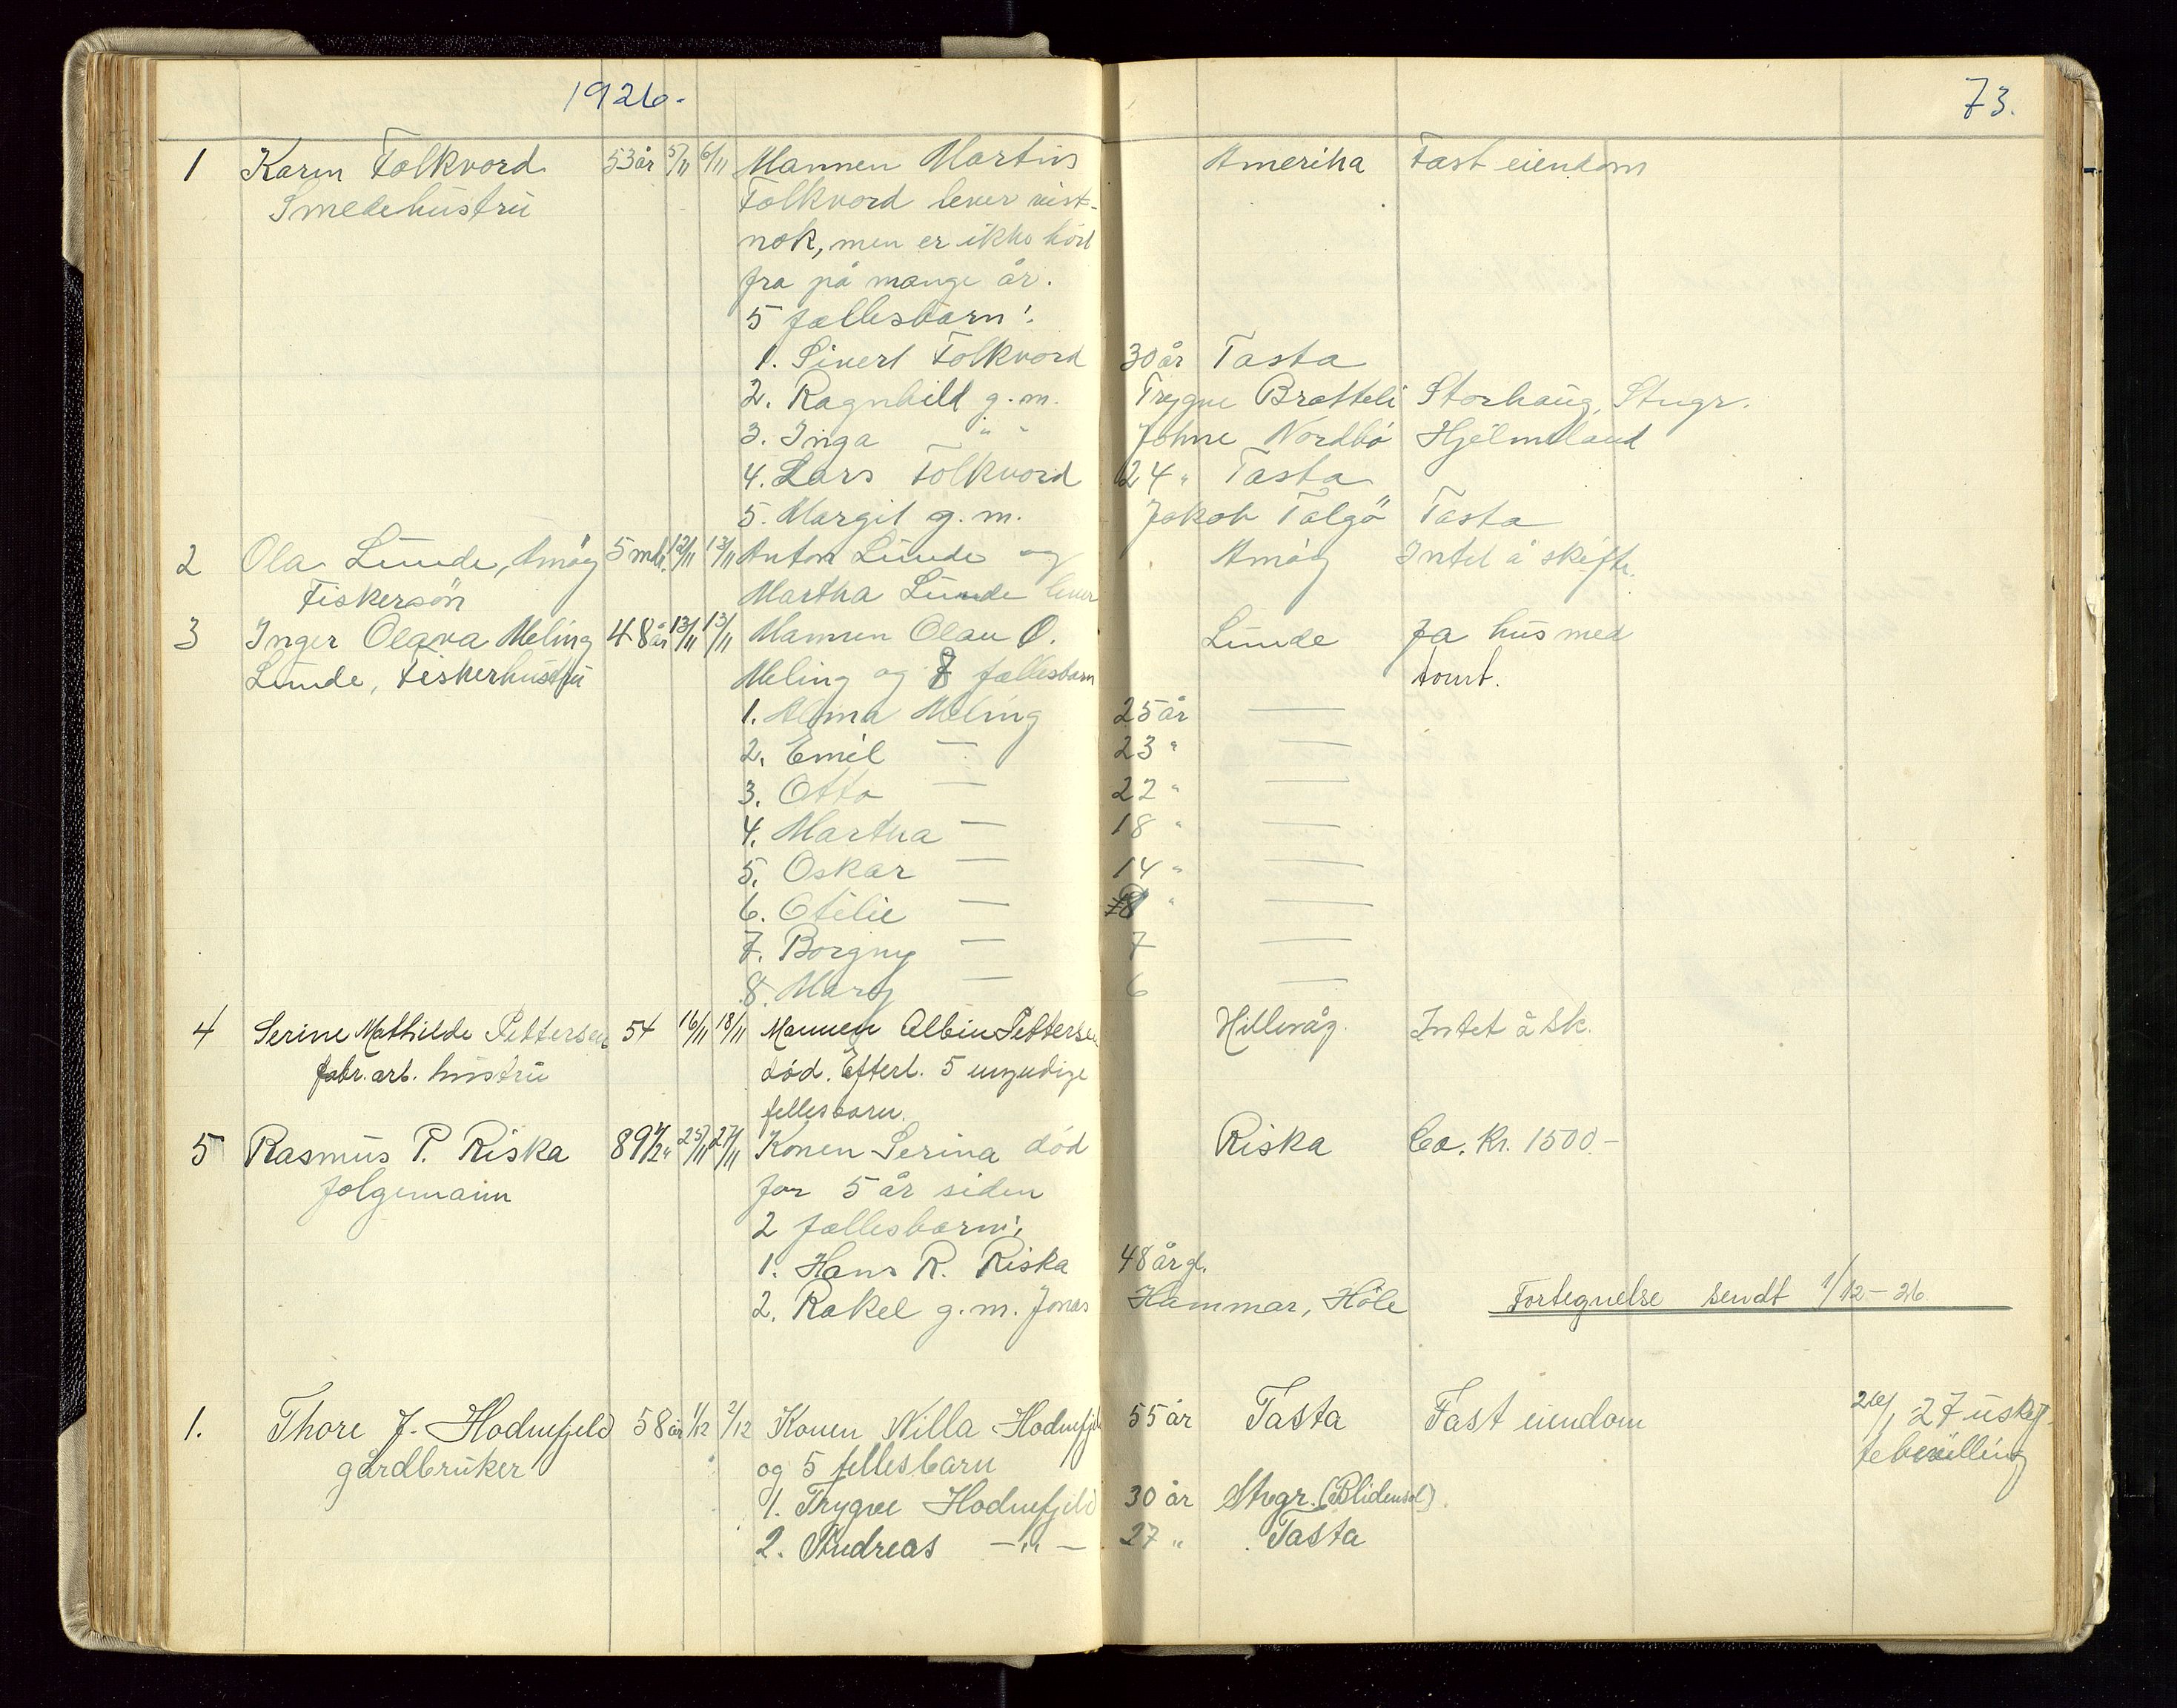 1926.
73.
1 Karen Folkvord 53 år 5/11 6/11 Mannen Martin Amerika Fast eiendom
Smedehustru Folkvord lever vist-
nok, men er ikke hört
fra på mange år.
5 fællesbarn:
1. Sivert Folkvord 30 år Tasta
2. Ragnhild g.m. Trygve Bratteli Storhaug, Stvgr.
3. Inga " " Johne Nordbö Hjelmeland
4. Lars Folkvord 24 " Tasta
5. Margit g.m. Jakob Talgö Tasta
2 Ola Lunde, Åmöy 5 mdr. 12/11 13/11 Anton Lunde og Åmöy Intet å skifte.
Fiskersön Martha Lunde lever
3 Inger Olava Meling 48 år 13/11 13/11 Mannen Olau O. Lunde Ja hus med
Lunde, Fiskerhustru Meling og 8 fællesbarn tomt.
1. Alma Meling 25 år —
2. Emil — 23 " —
3. Otto — 22 " —
4. Martha — 18 " —
5. Oskar — 14 " —
6. Otilie — " —
7. Borgny — 7 —
8. Mary — 6 —
4 Serine Mathilde Pettersen 54 16/11 18/11 Mannen Albin Pettersen Hillevåg. Intet å sk.
fabr. arb. hustru död. Efterl. 5 umyndige
fellesbarn.
5 Rasmus P. Riska 89 1/2 " 25/11 27/11 Konen Serina död Riska Ca. Kr. 1500.-
folgemann for 5 år siden
2 fællesbarn:
1. Hans R. Riska 48 år gl.
2. Rakel g.m. Jonas Hammar, Höle Fortegnelse sendt 1/12-26.
1. Thore J. Hodnefjeld 58 år 1/12 2/12 Konen Nilla Hodnefjeld 55 år Tasta Fast eiendom 27 uskif-
gårdbruker og 5 fellesbarn tebevilling
1. Trygve Hodnefjeld 30 år Stvgr. (Blidensol)
2. Andreas —"— 27 " Tasta